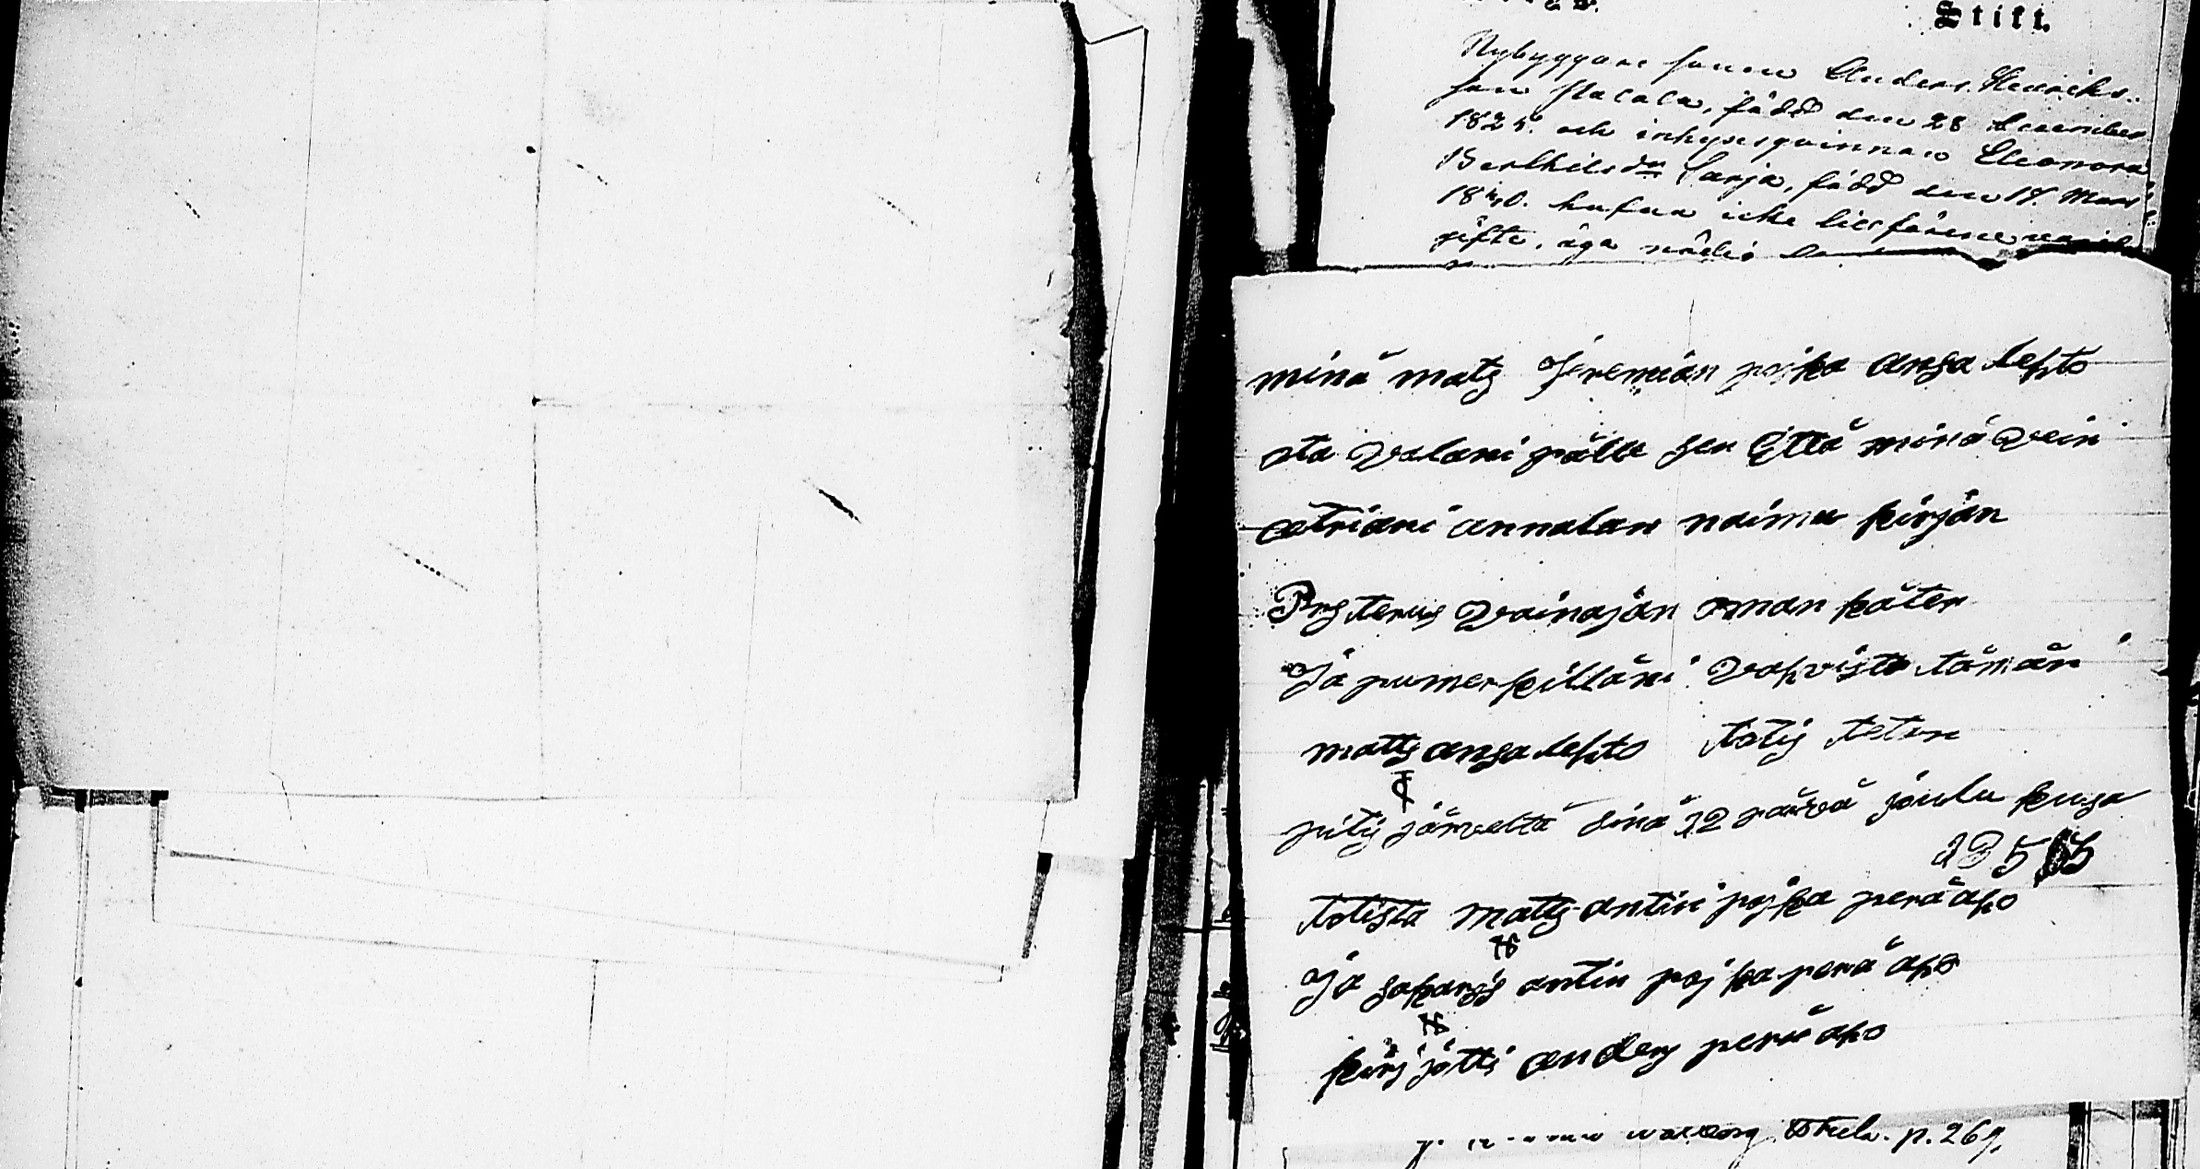 Stift.
Nybyggare sonen Anders Henriks-
son Stalala, född den 28 December
1825. och inhysesqvinnan Eleonora
Barthilsdr Sarja, född den 17. Mars
1840. hafva icke tillförene varit
gifte, äga nödig
minä mats Jeremiän pojka ansalehto
ota valani pälle sen Että minä vein
atriani annalan naima kirjän
Prysterus vainajän oman käten
Ja pumerkilläni vahvista tämän
matts ansalehto totis tetun
pitis järveltä sinä 12 päivä joulu kusa
185
totista matts antin pojka peräaho
Ja sakaris antin pojka peräaho
kirjjotti anders peräaho
p. 267,